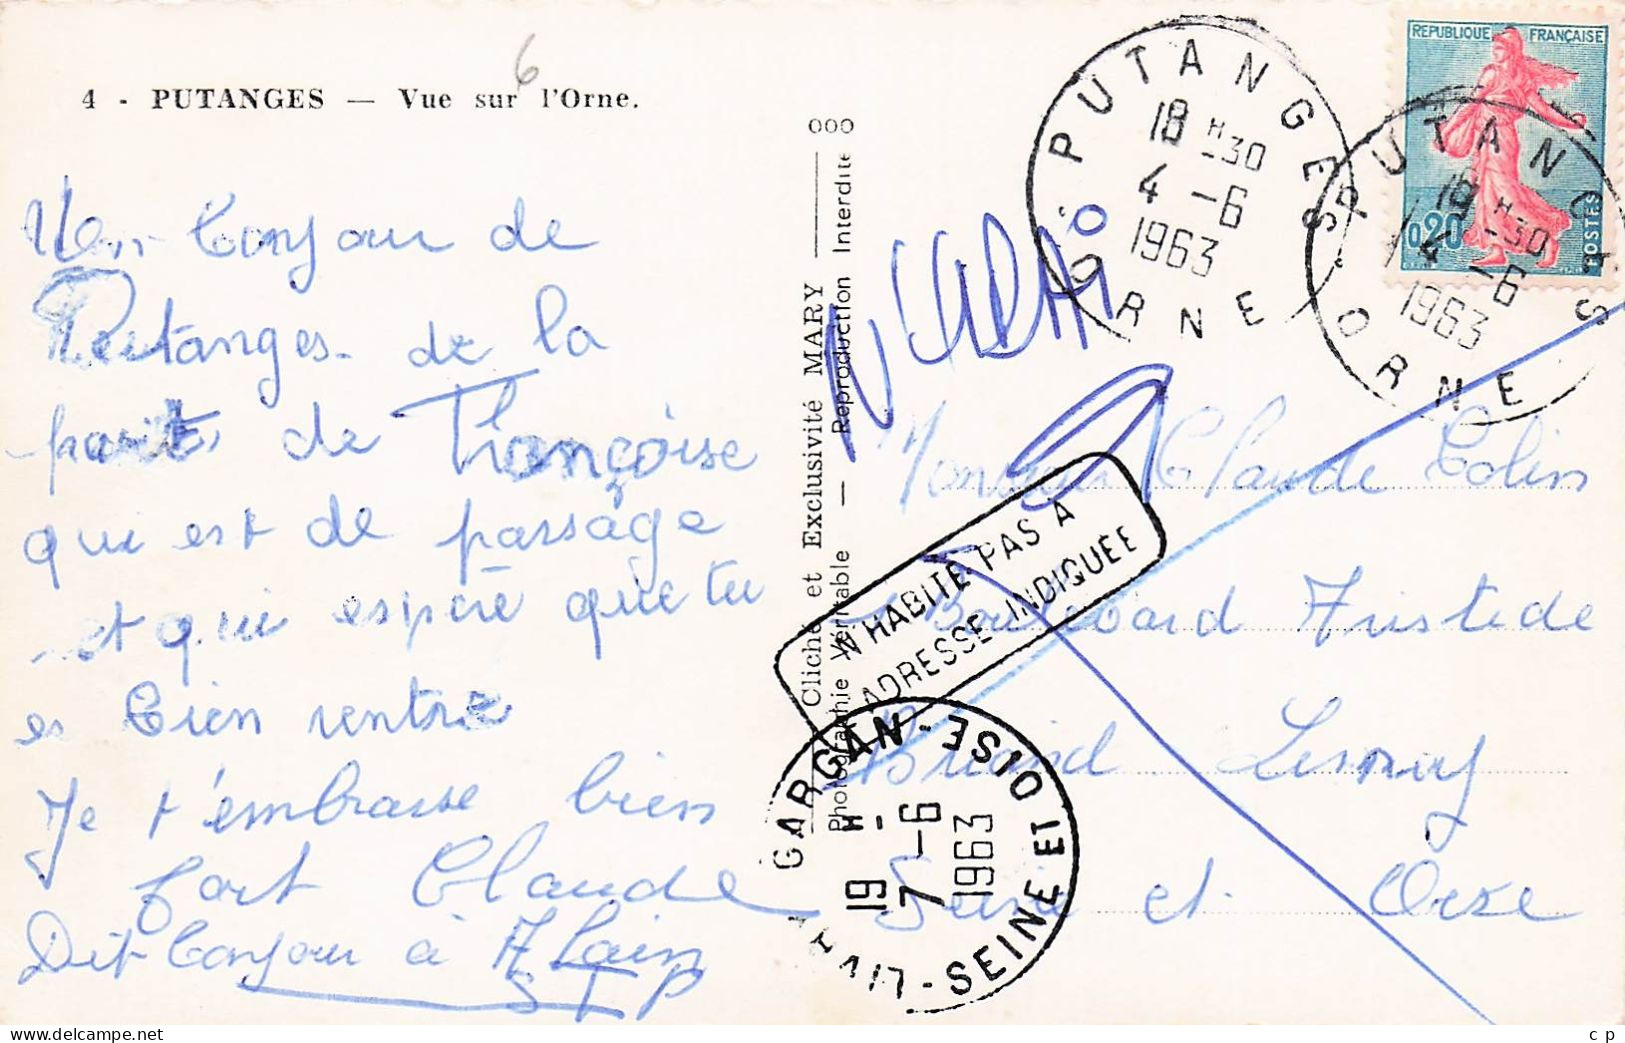 6
4 - PUTANGES — Vue sur l'Orne.
Un bonjour de
Putanges de la
part de Françoise
qui est de passage
et qui espère que tu
es bien rentré
Je t'embrasse bien
fort Claude
Dit bonjour à Alain
STP
000
Cliché et Exclusivité MARY
Photographie Véritable — Reproduction Interdite
PUTANGES
18 H -30
4 -6
1963
ORNE
REPUBLIQUE FRANÇAISE
0,20
POSTES
PUTANGES
18 H -30
4 -6
1963
ORNE
Monsieur Claude Colin
N'HABITE PAS A
L'ADRESSE INDIQUÉE
Boulevard Aristide
Briand Livry
Seine et Oise
LIVRY-GARGAN - SEINE ET OISE
19 H -
7 -6
1963
c p